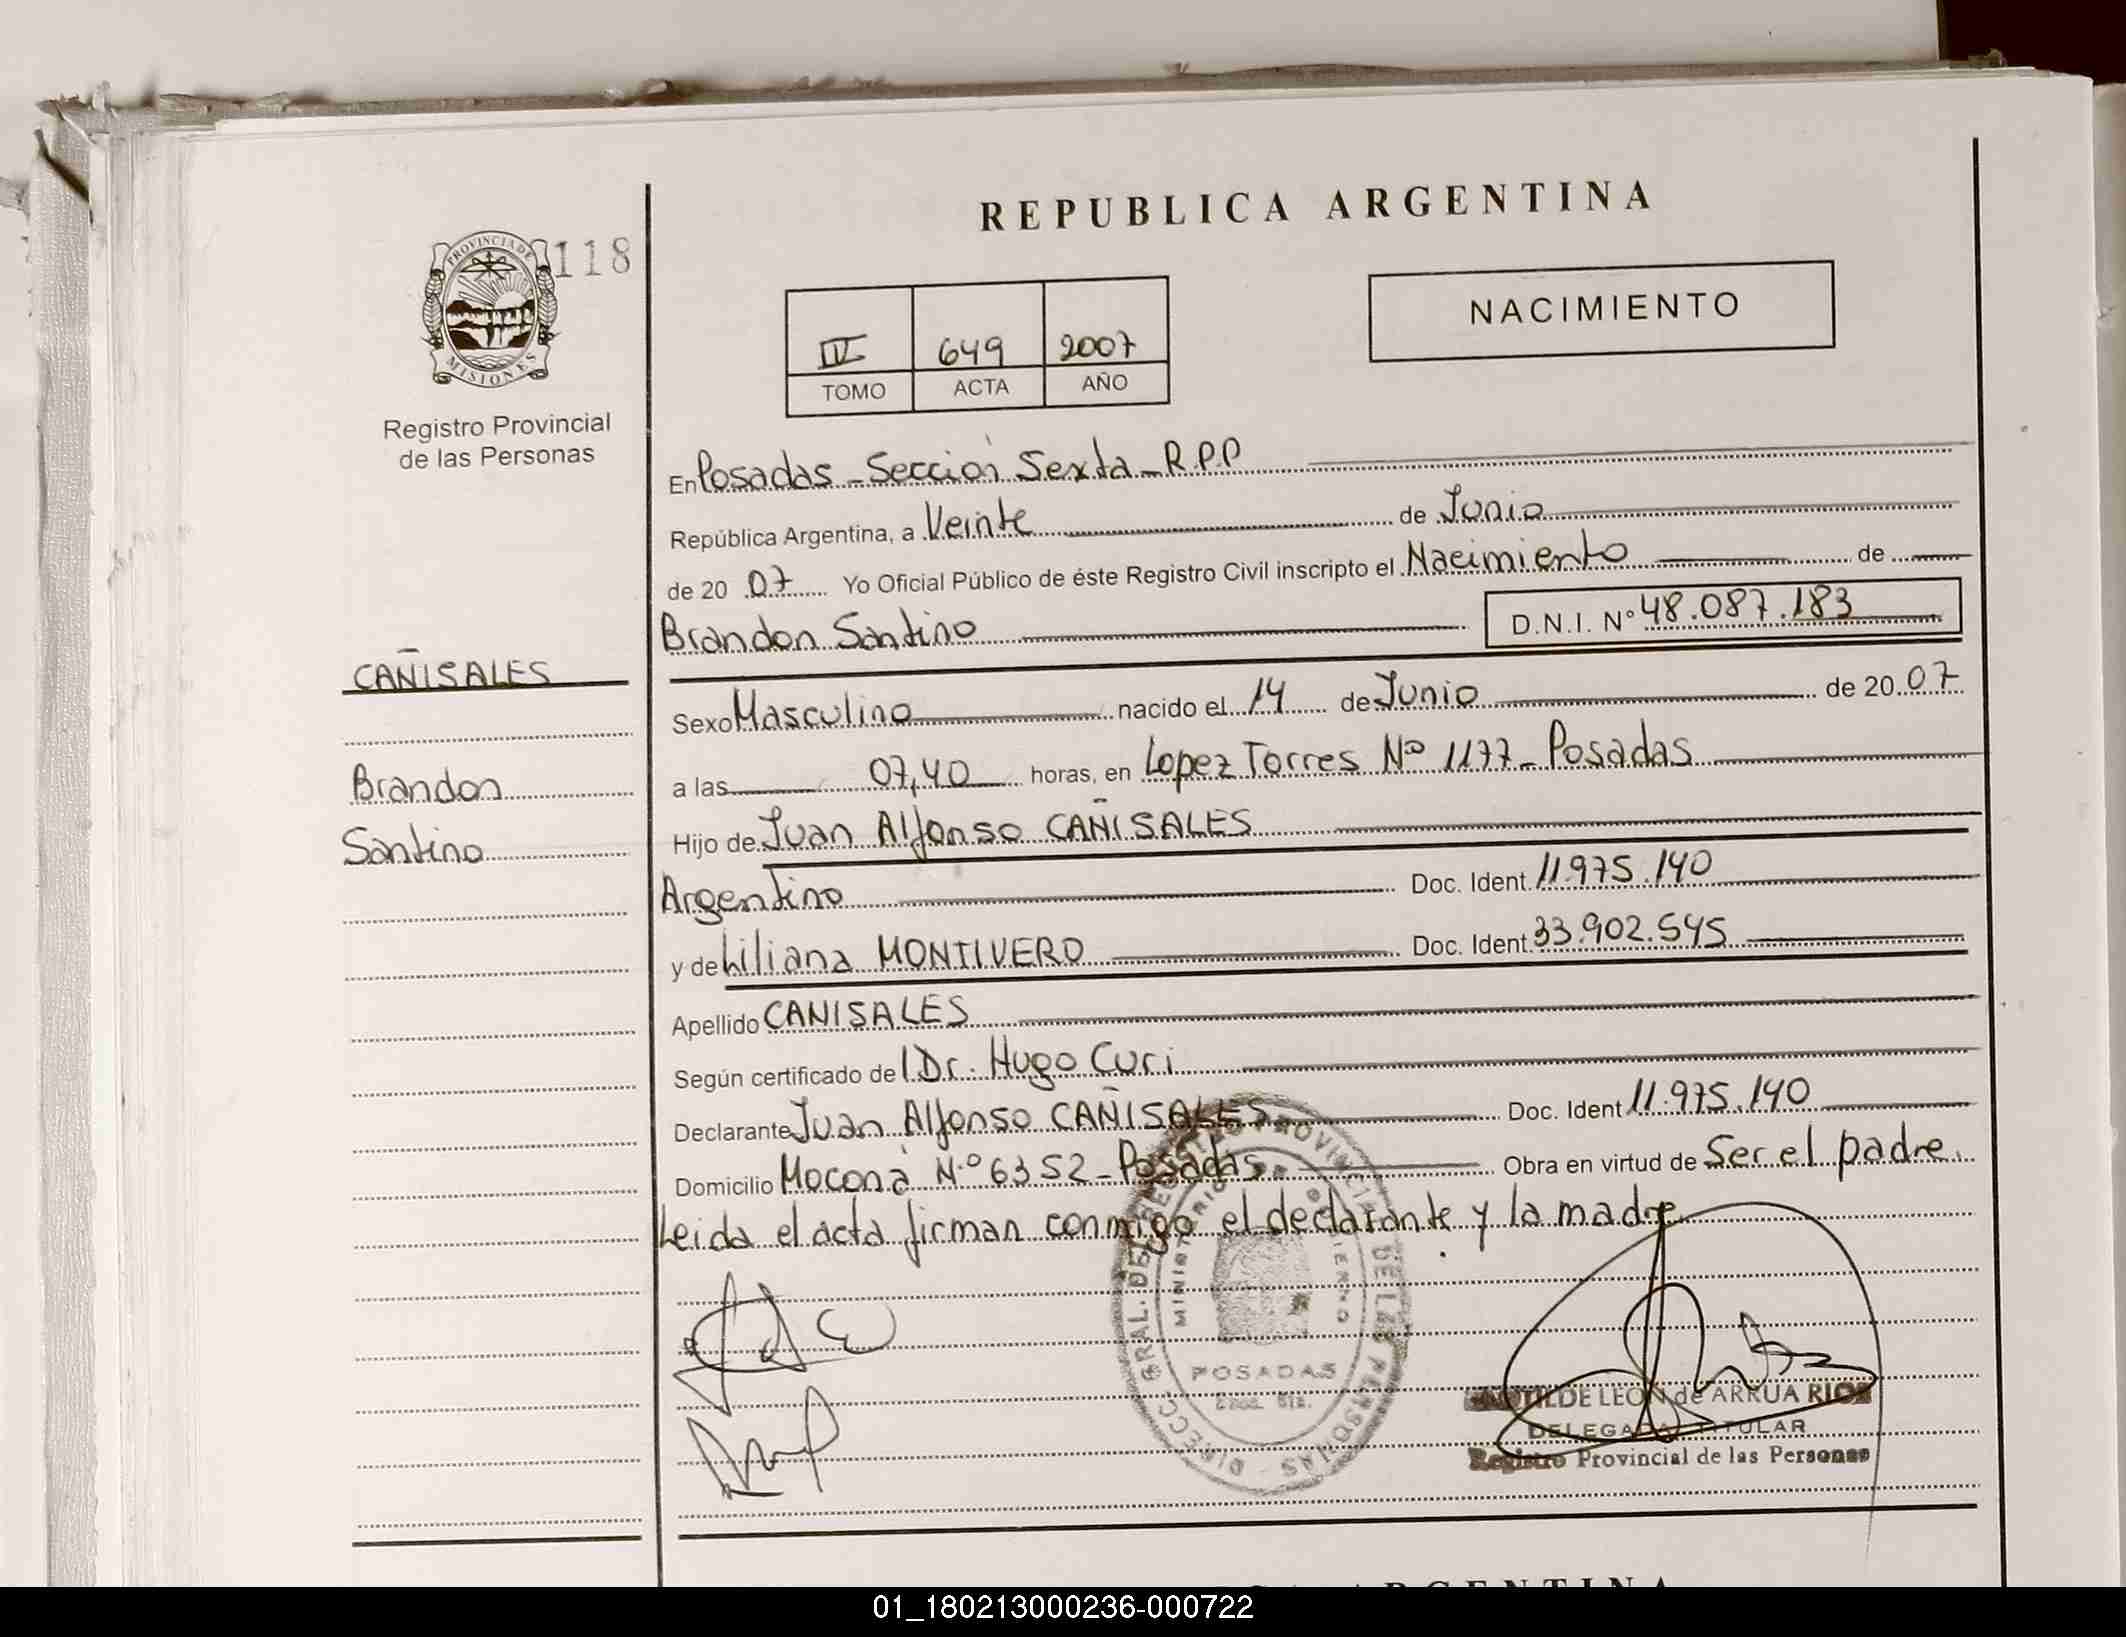 REPUBLICA ARGENTINA
PROVINCIA DE
MISIONES
118
Registro Provincial
de las Personas
NACIMIENTO
IV 649 2007
TOMO ACTA AÑO
En Posadas - Sección Sexta - R.P.P
República Argentina, a Veinte de Junio
de 20 07 Yo Oficial Público de éste Registro Civil inscripto el Nacimiento de
Brandon Santino D.N.I. Nº 48.087.183
CAÑISALES
Brandon
Santino
Sexo Masculino nacido el 14 de Junio de 20 07
a las 07,40 horas, en Lopez Torres Nº 1177 - Posadas
Hijo de Juan Alfonso CAÑISALES
Argentino Doc. Ident. 11.975.140
y de Liliana MONTIVERO Doc. Ident. 33.902.545
Apellido CANISALES
Según certificado de l Dr. Hugo Curi
Declarante Juan Alfonso CAÑISALES Doc. Ident 11.975.140
Domicilio Moconà N.º 6352 - Posadas Obra en virtud de Ser el padre.
Leida el acta firman conmigo el declarante y la madre
DIRECC. GRAL. DEL REGISTRO PROVINCIAL DE LAS PERSONAS
MINISTERIO DE GOBIERNO
POSADAS
LEON de ARRUA RIOS
DELEGADA TITULAR
Registro Provincial de las Personas
01_180213000236-000722